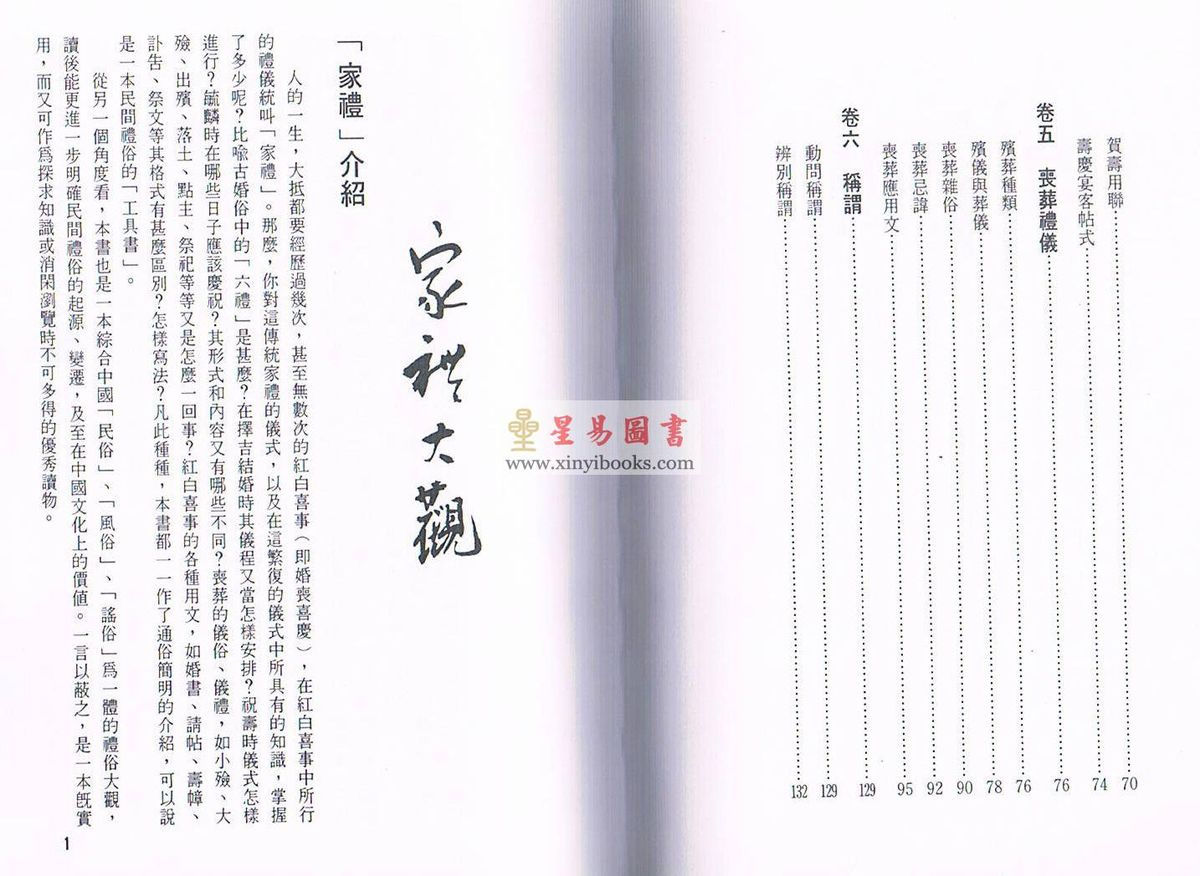 賀壽用聯 70
壽慶宴客帖式 74
卷五 喪葬禮儀 76
殯葬種類 76
殯儀與葬儀 78
喪葬雜俗 90
喪葬忌諱 92
喪葬應用文 95
卷六 稱謂 129
動問稱謂 129
辨別稱謂 132
星易圖書
www.xinyibooks.com
家禮大觀
「家禮」介紹
人的一生，大抵都要經歷過幾次，甚至無數次的紅白喜事（即婚喪喜慶），在紅白喜事中所行
的禮儀統叫「家禮」。那麼，你對這傳統家禮的儀式，以及在這繁復的儀式中所具有的知識，掌握
了多少呢？比喻古婚俗中的「六禮」是甚麼？在擇吉結婚時其儀程又當怎樣安排？祝壽時儀式怎樣
進行？毓麟時在哪些日子應該慶祝？其形式和內容又有哪些不同？喪葬的儀俗、儀禮，如小殮、大
殮、出殯、落土、點主、祭祀等等又是怎麼一回事？紅白喜事的各種用文，如婚書、請帖、壽幛、
訃告、祭文等其格式有甚麼區別？怎樣寫法？凡此種種，本書都一一作了通俗簡明的介紹，可以說
是一本民間禮俗的「工具書」。
從另一個角度看，本書也是一本綜合中國「民俗」、「風俗」、「謠俗」爲一體的禮俗大觀，
讀後能更進一步明確民間禮俗的起源、變遷，及至在中國文化上的價值。一言以蔽之，是一本旣實
用，而又可作爲探求知識或消閑瀏覽時不可多得的優秀讀物。
1